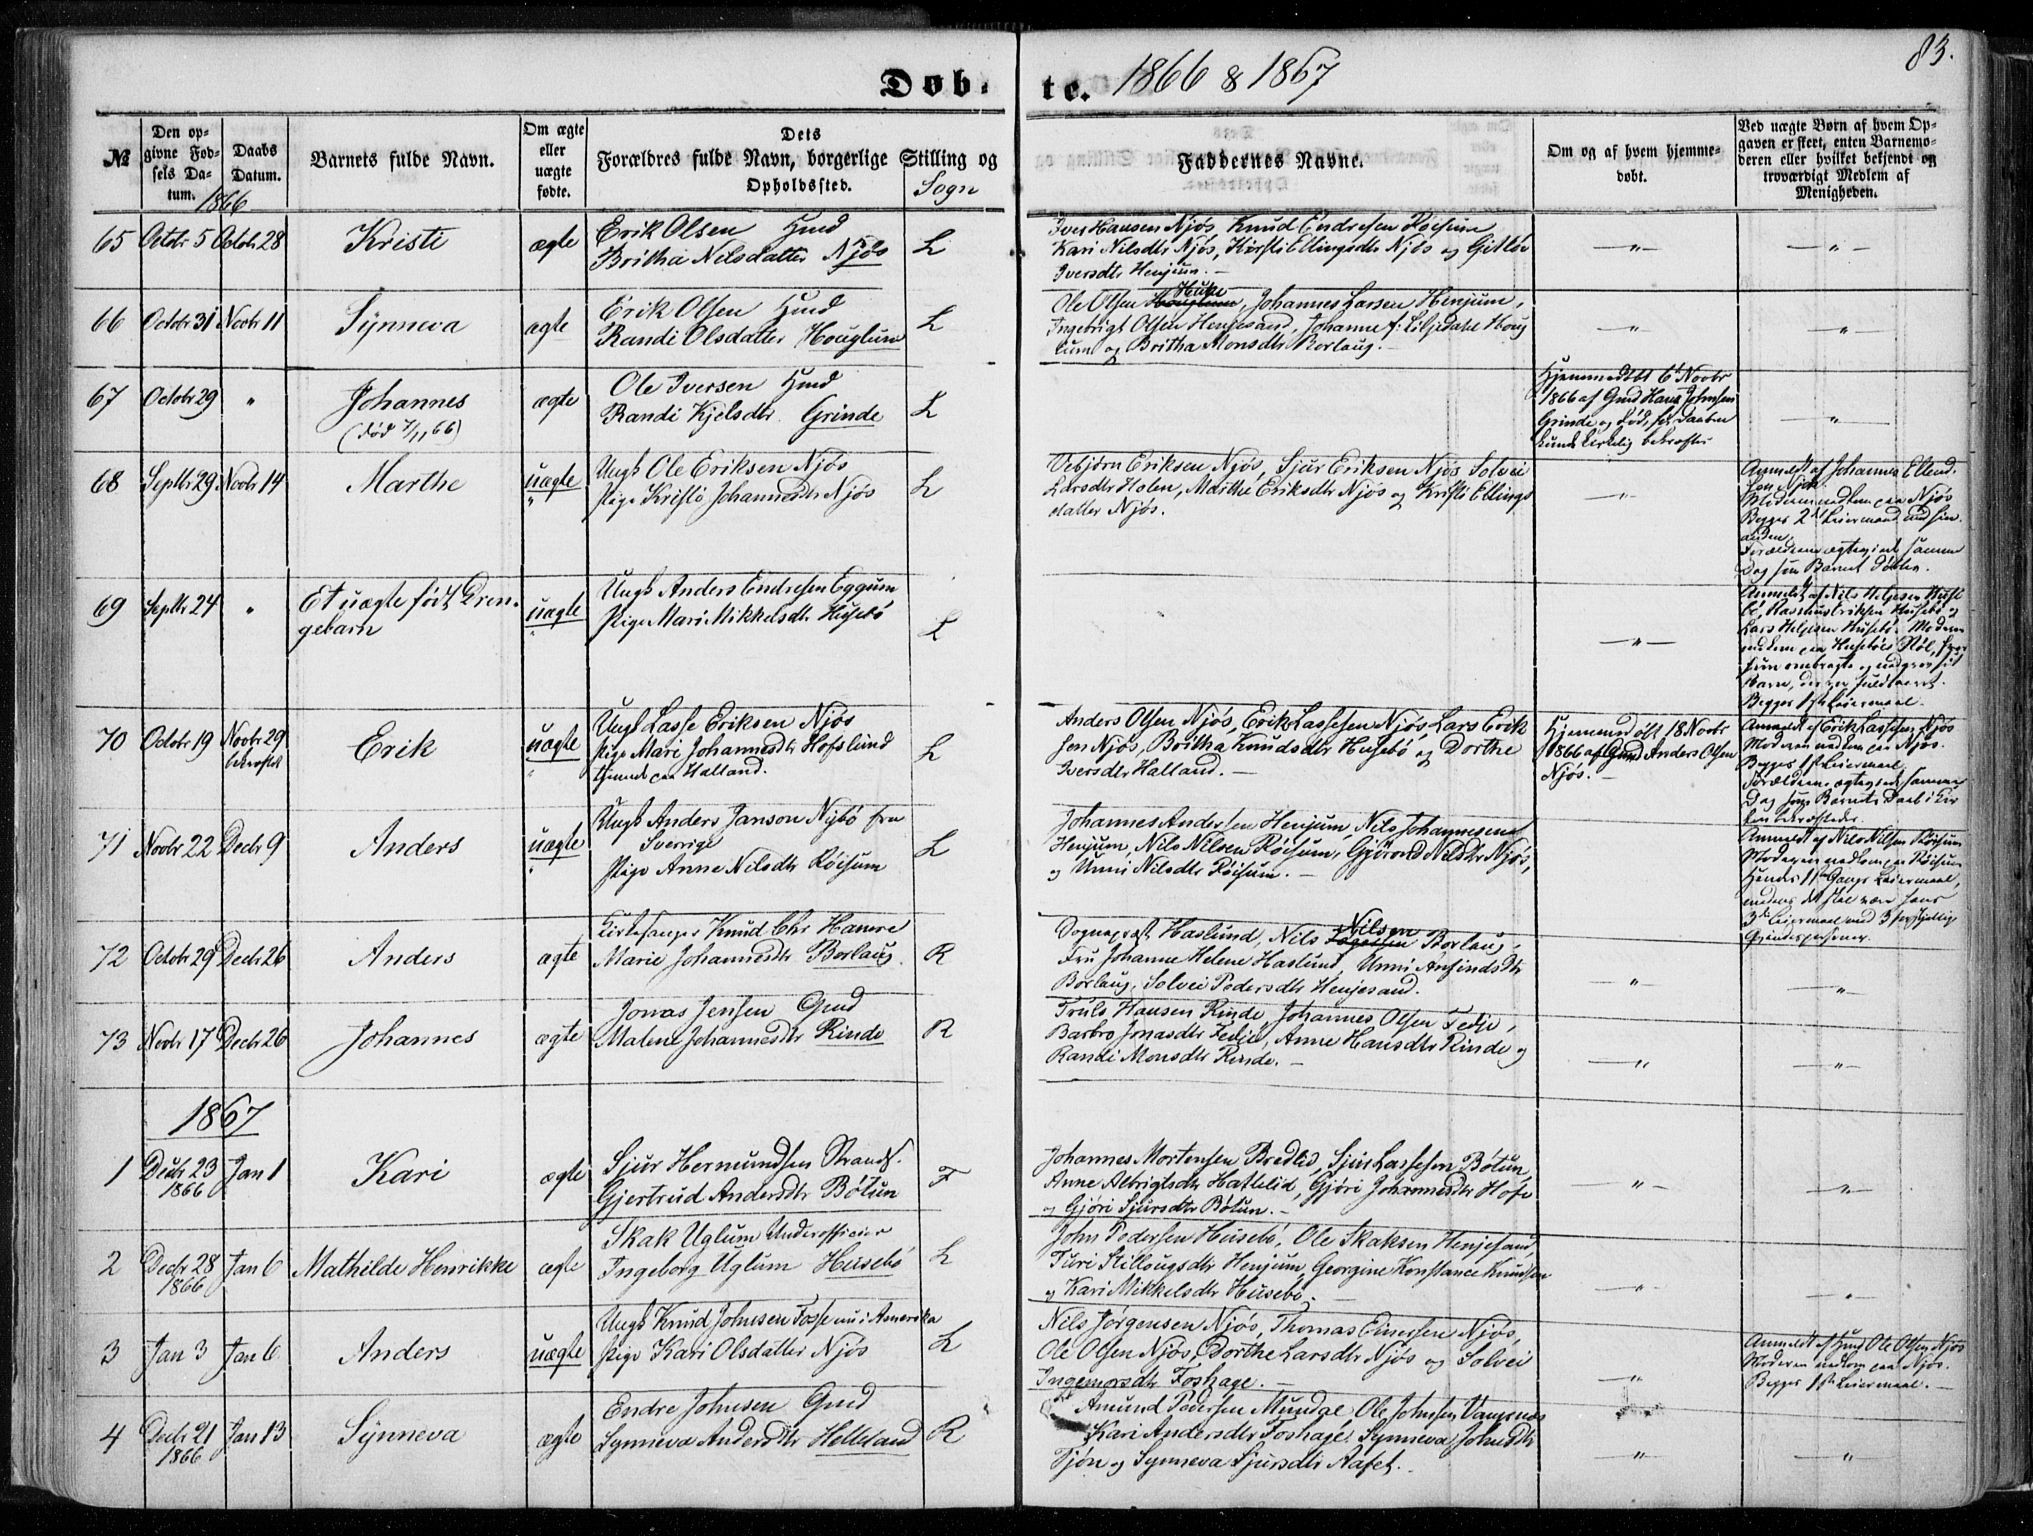 83.
Døb-
te. 1866 & 1867
№
Den op-
givne Fød-
sels Da-
tum.
1866
Daabs
Datum.
Barnets fulde Navn.
Om ægte
eller
uægte
fødte.
Dets
Forældres fulde Navn, borgerlige Stilling og
Opholdssted.
Sogn
Faddernes Navne.
Om og af hvem hjemme-
døbt.
Ved uægte Børn af hvem Op-
gaven er skeet, enten Barnemo-
deren eller hvilket bekjendt og
troværdigt Medlem af
Menigheden.
65 Octobr 5 Octobr 28 Kristi ægte
Erik Olsen Hmd
Britha Nilsdatter Njøs L
Iver Hansen Njøs, Knud Endresen Røisum
Kari Nilsdtr Njøs, Kirsti Ellingsdtr Njøs og Gitløv
Iversdtr Henjum. —
—"— —"—
66 Octobr 31 Novbr 11 Synneva ægte
Erik Olsen Hmd
Randi Olsdatter Houglum L
Ole Olsen Houglum, Johannes Larsen Henjum,
Ingebrigt Olsen Henjesand, Johanne f. Liljedahl Houg
lum og Britha Monsdtr Borlaug. —
—"— —"—
67 Octobr 29 " Johannes
(død 7/11 66)
ægte
Ole Iversen Hmd
Randi Kjelsdtr Grinde L
Hjemmedøbt 6t Novbr
1866 af Gmd Hans Johnsen
Grinde og død, før Daaben
kunde kirkelig bekræftes
—"—
68 Septbr 29 Novbr 14 Marthe uægte
"
Ungk Ole Eriksen Njøs
Pige Kristi Johannesdtr Njøs L
Vebjørn Eriksen Njøs, Sjur Eriksen Njøs Solvei
Larsdtr Holen, Marthe Eriksdtr Njøs og Kristi Ellings
datter Njøs.
—"—
Anmeldt af Johannes Ellend-
sen Njøs.
Moderen nedkom paa Njøs
Begges 2det Leiermaal med hin-
anden.
Forældrene ægteviet samme
Dag som Barnet døbtes.
69 Septbr 24 " Et uægte født Dren-
gebarn
uægte
"
Ungk Anders Endresen Eggum
Pige Mari Mikkelsdtr Husebø L
—"—
Anmeldt af Nils Helgesen Huse
bø, Rasmus Eriksen Husebø og
Lars Helgesen Husebø. Moderen
nedkom paa Husebøes Støl,
hun ombragte og nedgrov sit
Barn, der var fuldbaaret.
Begges 1ste Leiermaal.
70 Octobr 19 Novbr 29
bekræftet
Erik uægte
"
Ungk Lasse Eriksen Njøs
Pige Mari Johannesdtr Hofslund
tjenende paa Halland. L
Anders Olsen Njøs, Erik Lassesen Njøs, Lars Erik
sen Njøs, Britha Knudsdtr Husebø og Dorthe
Iversdtr Halland. —
Hjemmedøbt 18 Novbr
1866 af Gmd Anders Olsen
Njøs. —
Anmeldt af Erik Lassesen Njøs
Moderen nedkom paa Njøs.
Begges 1ste Leiermaal
Forældrene ægteviet samme
Dag som Barnets Daab i Kir
ken bekræftedes.
71 Novbr 22 Decbr 9 Anders uægte
"
Ungk Anders Janson Nybø fra
Sverrige
Pige Anne Nilsdtr Røisum L
Johannes Andersen Henjum, Nils Johannesen
Henjum, Nils Nilsen Røisum, Gjørond Nilsdtr Njøs,
og Unni Nilsdtr Røisum. —
Anmeldt af Nils Nilsen Røisum
Moderen nedkom paa Røisum
Hendes 1ste Gangs Leiermaal,
medens det skal være hans
3die Leiermaal med 3 forskjellige
Qvindepersoner.
72 Octobr 29 Decbr 26 Anders ægte
Kirkesanger Knud Chr Hamre
Marie Johannesdtr Borlaug. R
Sognepræst Haslund, Nils Nilsen Borlaug,
Fru Johanne Helene Haslund, Unni Anfindsdtr
Borlaug, Solvei Pedersdtr Henjesand.
—"— —"—
73 Novbr 17 Decbr 26 Johannes ægte
Jonas Jensen Gmd
Malene Johannesdtr Rinde R
Truls Hansen Rinde, Johannes Olsen Fedje,
Barbro Jonasdtr Fedje, Anne Hansdtr Rinde og
Randi Monsdtr Rinde. —
—"— —"—
1867
1 Decbr 23
1866
Jan 1 Kari ægte
Sjur Hermundsen Strands.
Gjertrud Andersdtr Bøtun F
Johannes Mortensen Bredlid, Sjur Lassesen Bøtun,
Anne Albrigtsdtr Hatlelid, Gjøri Johannesdtr Hofe
og Gjøri Sjursdtr Bøtun. —
"— —"—
2 Decbr 28
1866
Jan 6 Mathilde Henrikke ægte
Skak Uglum Underofficier
Ingeborg Uglum Husebø L
John Pedersen Husebø, Ole Skaksen Henjesand,
Turi Stillougsdtr Henjum, Georgine Konstance Knudsen
og Kari Mikkelsdtr Husebø. —
—"— "
3 Jan 3 Jan 6 Anders uægte
Ungk Knud Johnsen Fosse nu i Amerika
Pige Kari Olsdatter Njøs L
Nils Jørgensen Njøs, Thomas Einersen Njøs,
Ole Olsen Njøs, Dorthe Larsdtr Njøs og Solvei
Ingemorsdtr Foshage. —
"
Anmeldt af Hmd Ole Olsen Njøs
Moderen nedkom paa Njøs.
Begges 1ste Leiermaal. —
4 Decbr 21
1866
Jan 13 Synneva ægte
Endre Johnsen Gmd
Synneva Andersdtr Helleland R
Amund Pedersen Mundal Ole Johnsen Vangsnes
Kari Andersdtr Foshage, Synneva Johnsdtr
Tjøn og Synneva Sjursdtr Aafet.
" —"—